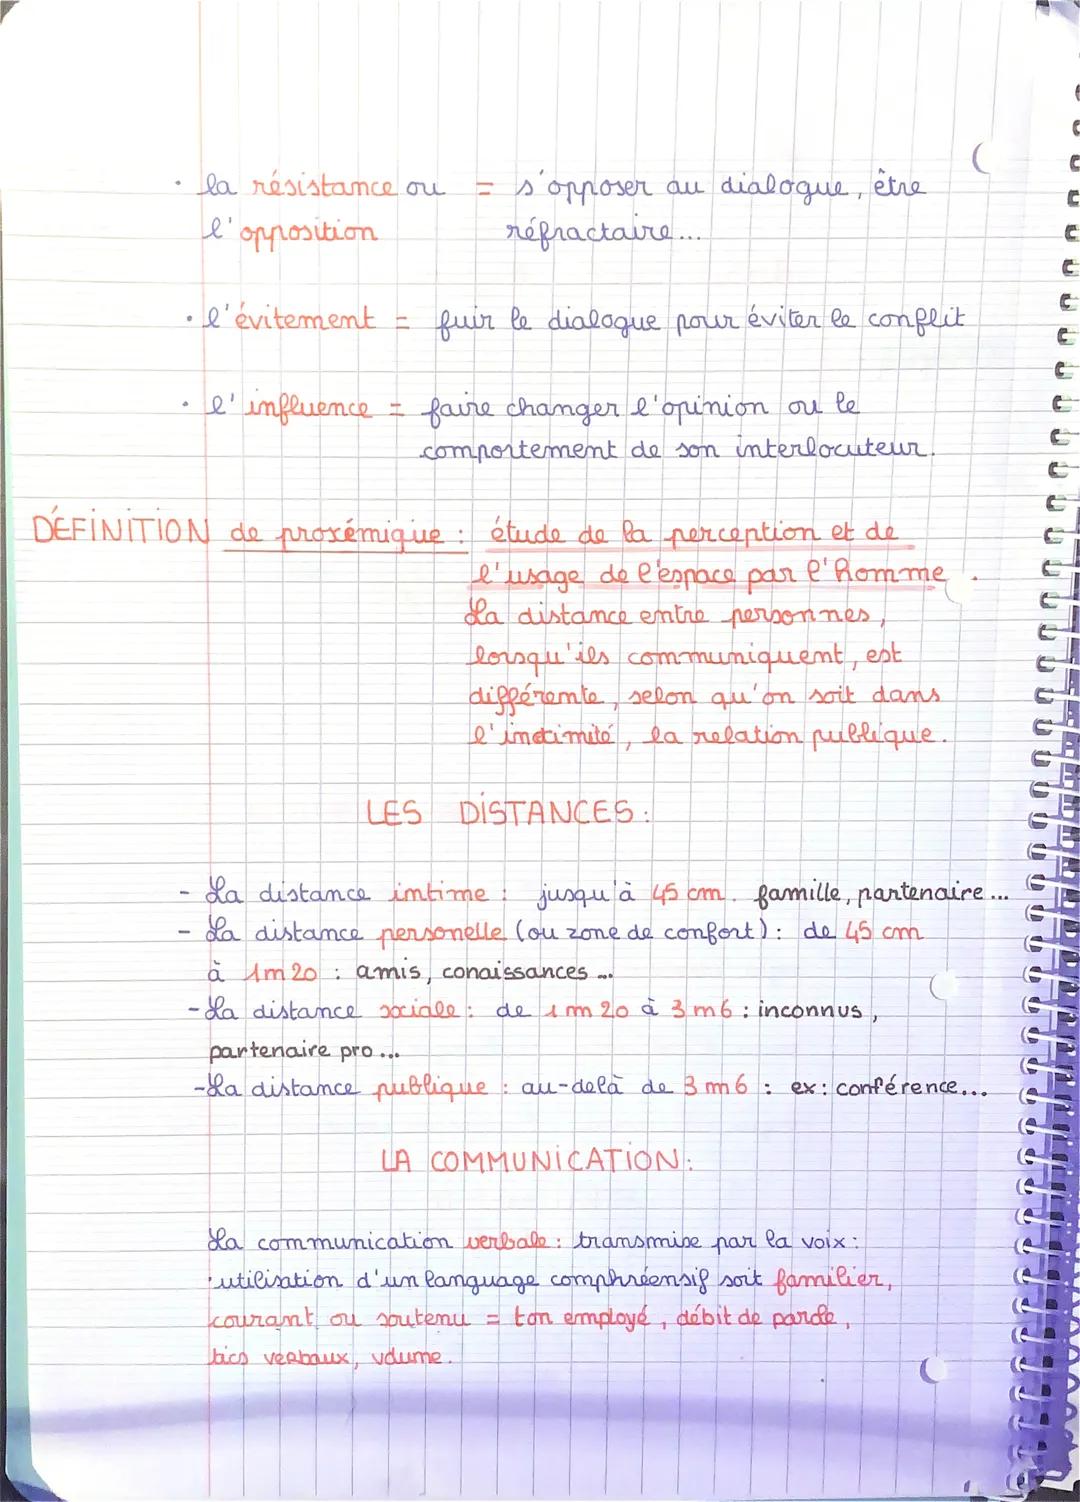 · la résistance ou = s'opposer au dialogue, être
l'opposition réfractaire...
· l'évitement = fuir le dialogue pour éviter le conflit
· l'influence = faire changer l'opinion ou le
comportement de son interlocuteur.
DÉFINITION de proxémique : étude de la perception et de
l'usage de l'espace par l'homme.
La distance entre personnes,
lorsqu'ils communiquent, est
différente, selon qu'on soit dans
l'intimité, la relation publique.
LES DISTANCES :
- La distance intime : jusqu'à 45 cm. famille, partenaire...
- La distance personelle (ou zone de confort) : de 45 cm
à 1m20 : amis, conaissances...
- La distance sociale : de 1m20 à 3m6 : inconnus,
partenaire pro...
- La distance publique : au-delà de 3m6 : ex : conférence...
LA COMMUNICATION :
La communication verbale : transmise par la voix :
· utilisation d'un language comphréensif soit familier,
courant ou soutenu = ton employé, débit de parole,
tics verbaux, volume.